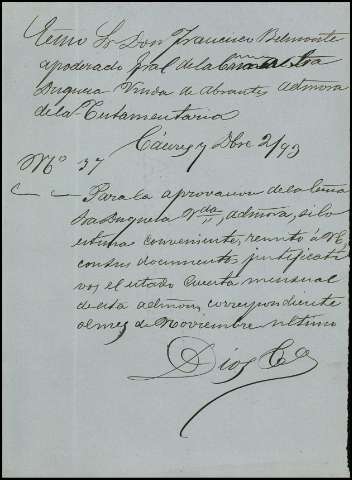 Exmo Sr Don Francisco Belmonte
apoderado gral de la Exma Sra
Duquesa Viuda de Abrantes admora
de la Testamentaria
Cáceres y Dbre 2/93
No 37
Para la aprovacion de la Exma
Sra Duquesa Vda, admora, si lo
estima conveniente, remito á V.E,
con sus documentos justificati
vos el estado cuenta mensual
de esta admon, correspondiente
al mes de Noviembre ultimo
Dios &a